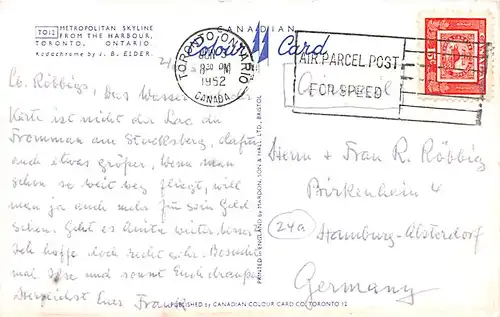 TO12 METROPOLITAN SKYLINE
FROM THE HARBOUR,
TORONTO, ONTARIO
Kodachrome by J. B. ELDER.
CANADIAN
Colour Card
TORONTO, ONTARIO
JUN 3
8 30 PM
1952
CANADA
AIR PARCEL POST
FOR SPEED
Lb. Röbbigs, Das Wasser
Karte ist nicht der
am Stocksberg, dafür
auch etwas größer, Wenn man
schon so weit weg fliegt, will
man ja auch mehr für sein Geld
sehen. Geht es Anita weiter besser
Ich hoffe doch recht sehr. Besucht
mal und sonnt Euch draußen
Herzlichst Eure
Herrn + Frau R. Röbbig
Birkenhein 4
24a
Hamburg-Alsterdorf
Germany
PRINTED IN ENGLAND by MARDON, SON & HALL, LTD., BRISTOL
PUBLISHED by CANADIAN COLOUR CARD CO., TORONTO 12